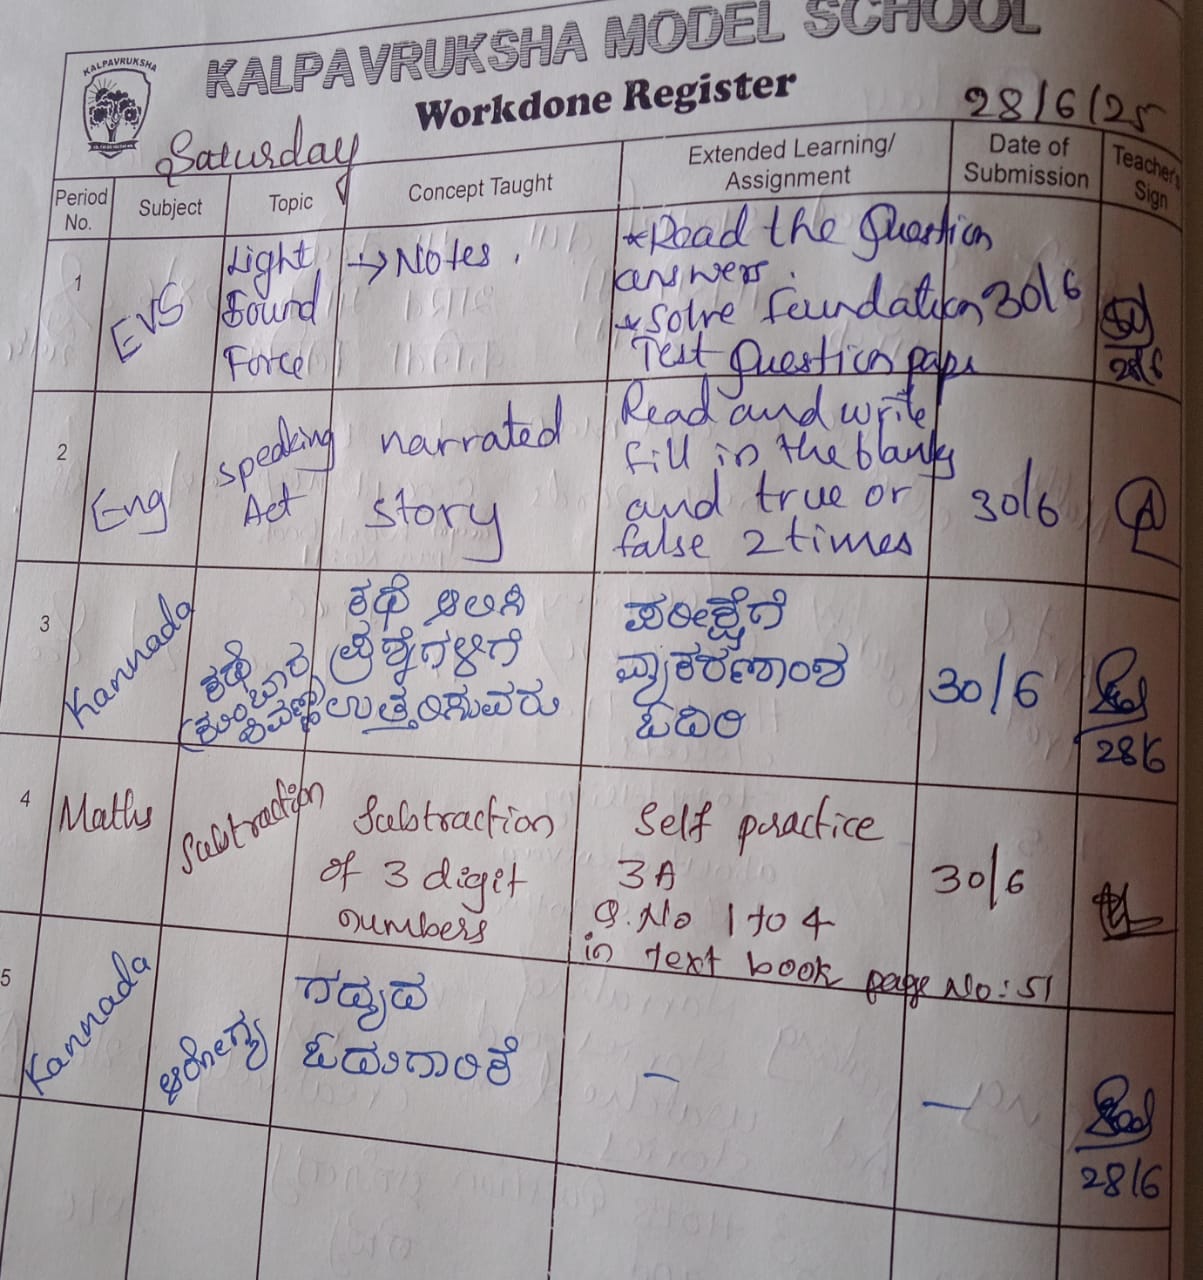 KALPAVRUKSHA
KALPAVRUKSHA MODEL SCHOOL
Workdone Register
Saturday
28/6/25
Period No.
Subject
Topic
Concept Taught
Extended Learning/ Assignment
Date of Submission
Teacher's Sign
1
EVS
Light
Sound
Force
→ Notes.
*Read the Question
answers
*Solve foundation
Test Question pape
30/6
28/6
2
Eng
speaking
Act
narrated
story
Read and write
fill in the blanks
and true or
false 2 times
30/6
3
Kannada
ಕಥೆ
(ಕುಂಬಾರ
ಕಥೆ ಆಲಿಸಿ
ಪ್ರಶ್ನೆಗಳಿಗೆ
ಉತ್ತರಿಸುವರು
ಪರೀಕ್ಷೆಗೆ
ವ್ಯಾಕರಣಾಂಶ
ಓದಿರಿ
30/6
28/6
4
Maths
Subtraction
Subtraction
of 3 digit
numbers
Self practice
3A
Q. No 1 to 4
in text book page No: 51
30/6
5
Kannada
ಆರೋಗ್ಯ
ಗದ್ಯದ
ಓದುಗಾರಿಕೆ
–
–
28/6